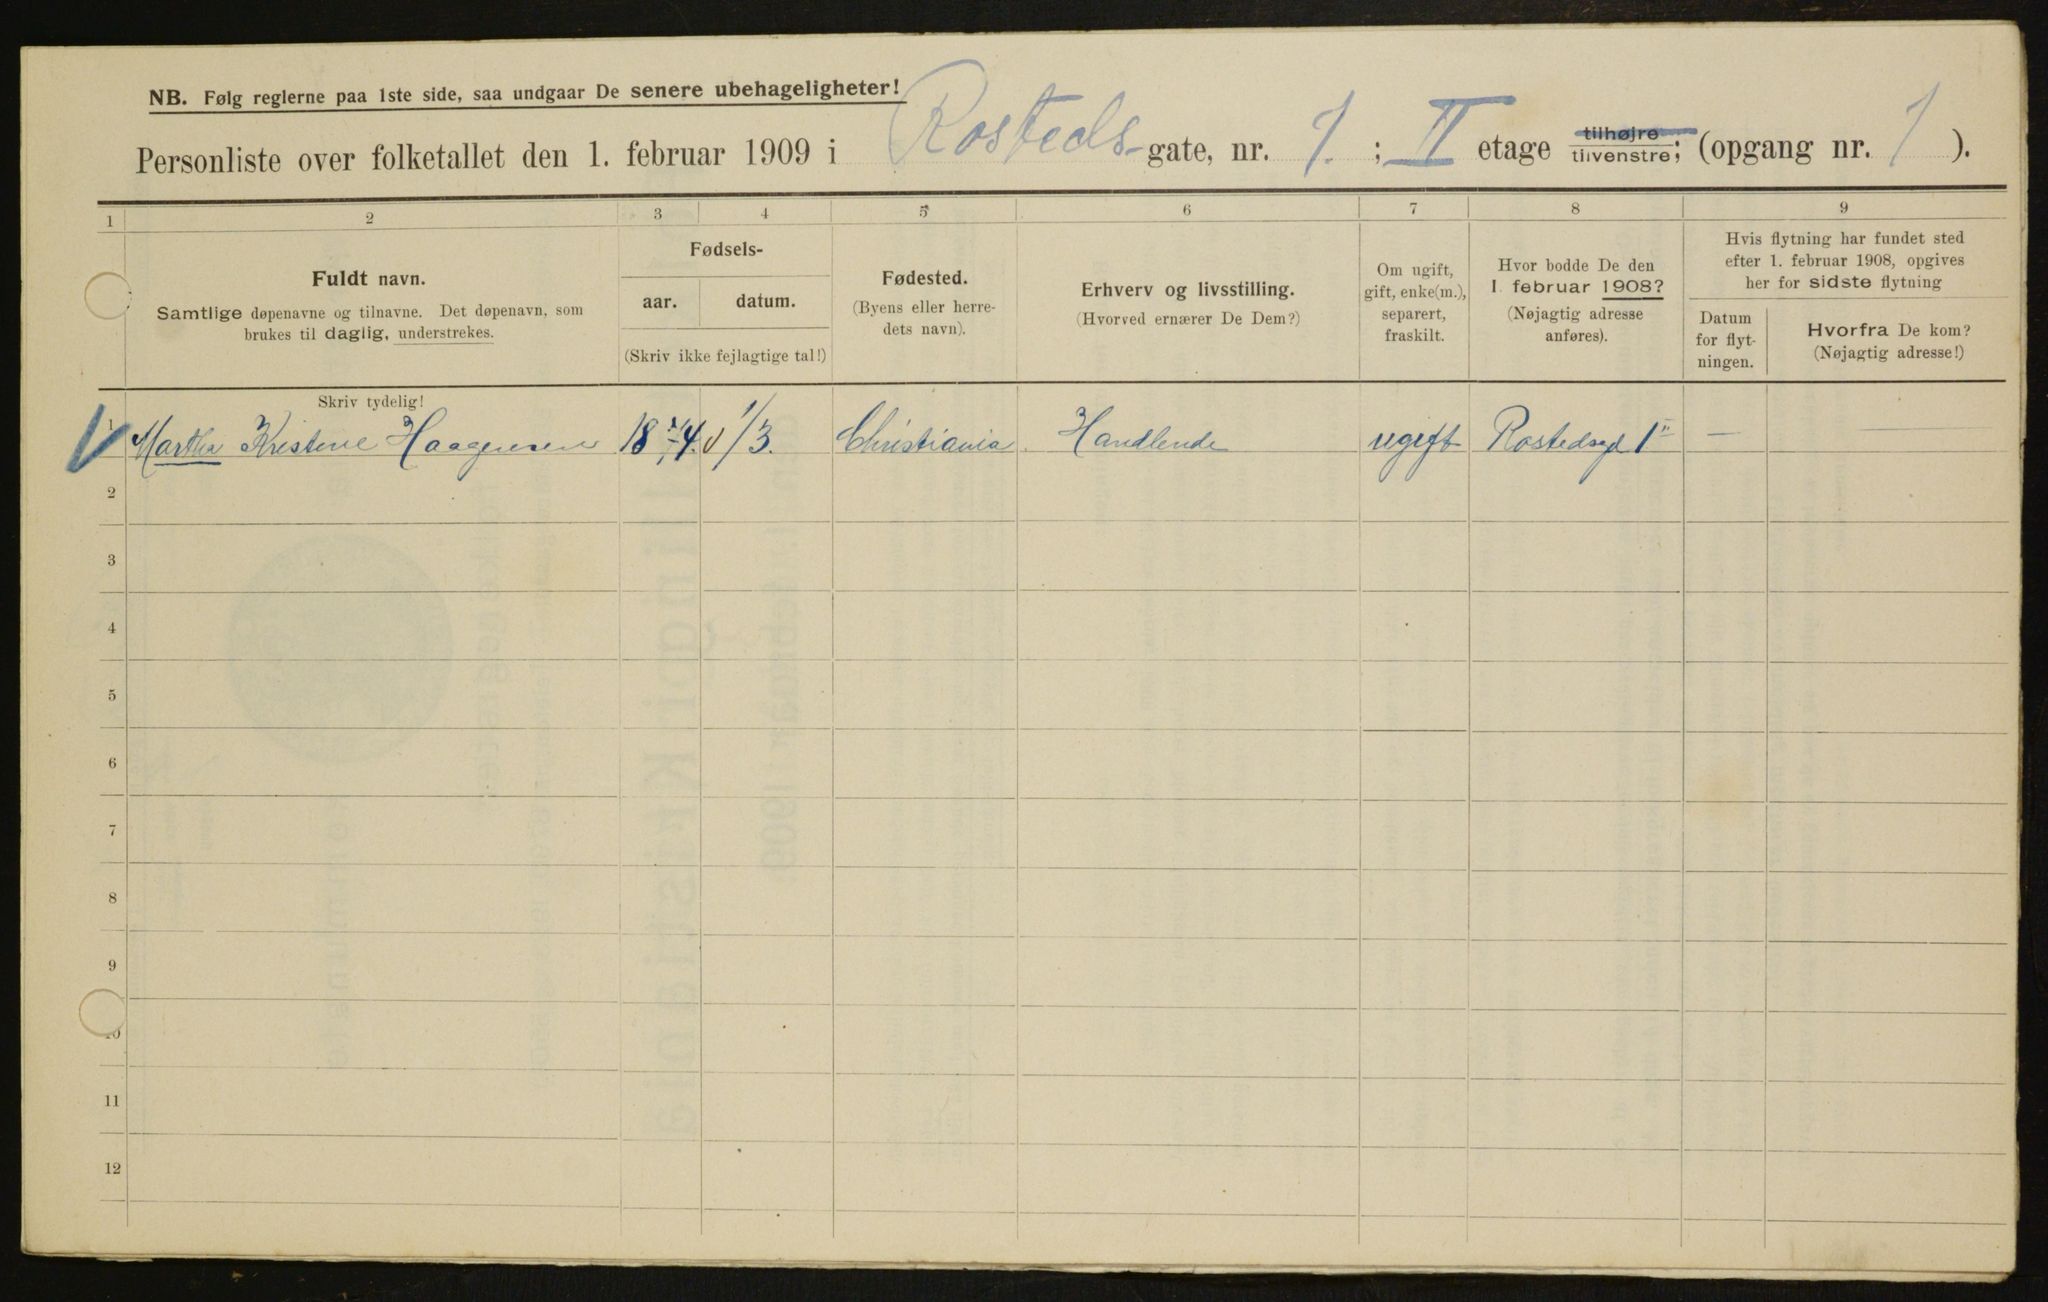 NB. Følg reglerne paa 1ste side, saa undgaar De senere ubehageligheter!
Personliste over folketallet den 1. februar 1909 i Rosteds-gate, nr. 1. ; II etage tilhøjre tilvenstre; (opgang nr. 1 ).
1 2 3 4 5 6 7 8 9
Fuldt navn.
Samtlige døpenavne og tilnavne. Det døpenavn, som
brukes til daglig, understrekes.
Fødsels-
aar. datum.
(Skriv ikke fejlagtige tal!)
Fødested.
(Byens eller herre-
dets navn).
Erhverv og livsstilling.
(Hvorved ernærer De Dem?)
Om ugift,
gift, enke(m.),
separert,
fraskilt.
Hvor bodde De den
1. februar 1908?
(Nøjagtig adresse
anføres).
Hvis flytning har fundet sted
efter 1. februar 1908, opgives
her for sidste flytning
Datum
for flyt-
ningen.
Hvorfra De kom?
(Nøjagtig adresse!)
Skriv tydelig!
1 Martha Kristine Haagensen 1874. 1/3. Christiania Handlende ugift Rostedsgd 1 — —
2
3
4
5
6
7
8
9
10
11
12